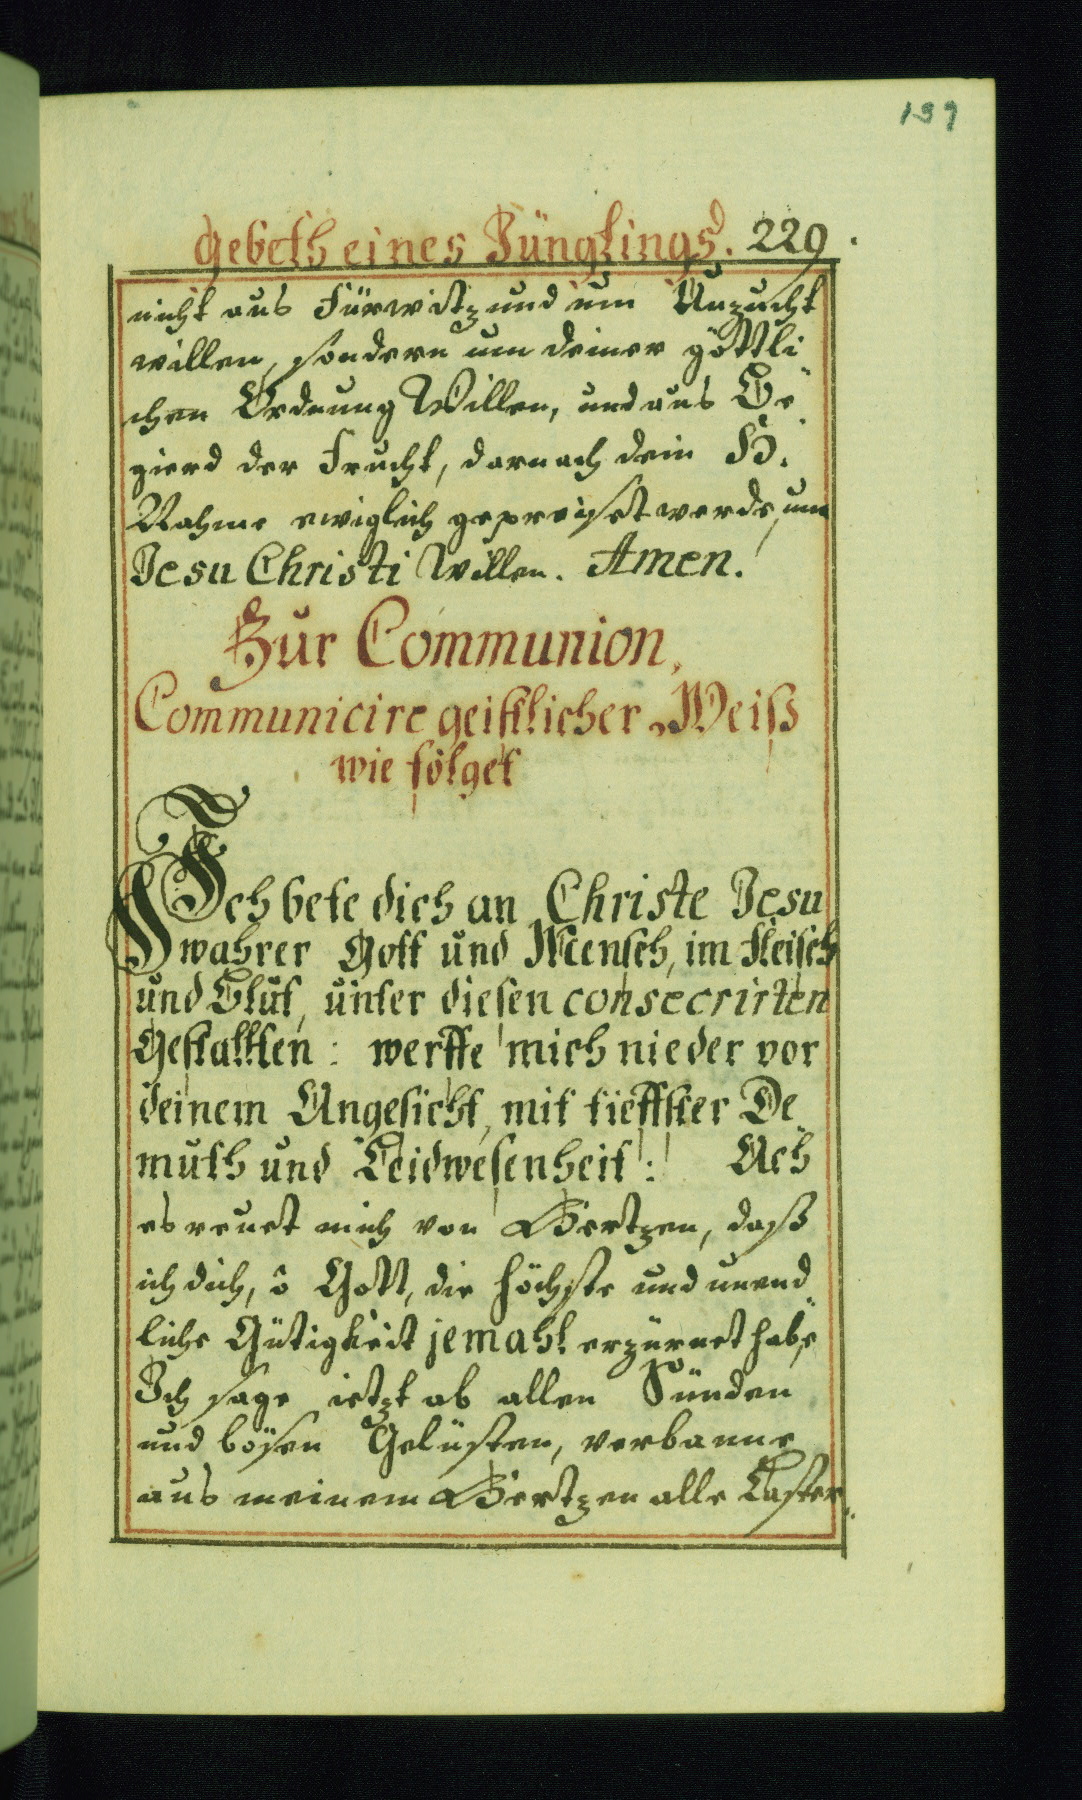 139
Gebeth eines Jünglings. 229.
nicht aus Fürwitz und um Unzucht
willen, sondern um deiner göttli
chen Ordnung Willen, und aus Be
gierd der Frucht, darnach dein H.
Nahme ewiglich gepreiset werde, um
Jesu Christi Willen. Amen.
Zur Communion,
Communicire geistlicher Weiß
wie folget
Ich bete dich an Christe Jesu
wahrer Gott und Mensch, im Fleisch
und Blut, unter diesen consecrirten
Gestaltten: werffe mich nieder vor
deinem Angesicht, mit tieffster De
muth und Leidwesenheit: Ach
es reuet mich von Hertzen, daß
ich dich, ô Gott, die höchste und unend
liche Gütigkeit jemahl erzürnet habe,
Ich sage ietzt ab allen Sünden
und bösen Gelüsten, verbanne
aus meinem Hertzen alle Laster.